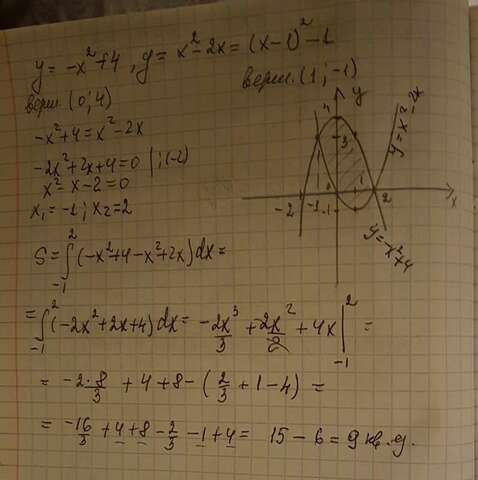 y = -x² + 4 , y = x² - 2x = (x-1)² - 1
верш. (0; 4)
верш. (1; -1)
-x² + 4 = x² - 2x
-2x² + 2x + 4 = 0 | : (-2)
x² - x - 2 = 0
x₁ = -1; x₂ = 2
y
4
3
-2
-1
0
1
2
x
-1
y = x² - 2x
y = -x² + 4
S = ∫₋₁² (-x² + 4 - x² + 2x) dx =
= ∫₋₁² (-2x² + 2x + 4) dx = -2x³/3 + 2x²/2 + 4x |₋₁² =
= -2·8/3 + 4 + 8 - (2/3 + 1 - 4) =
= -16/3 + 4 + 8 - 2/3 - 1 + 4 = 15 - 6 = 9 кв. ед.